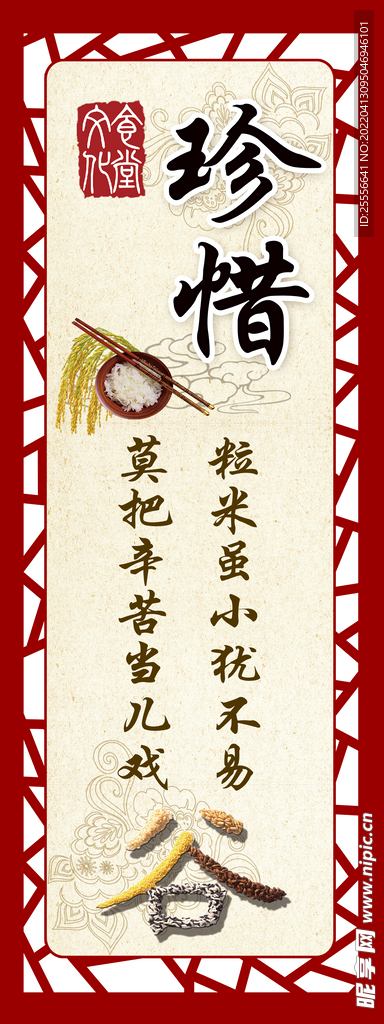 珍惜
食堂
文化
粒米虽小犹不易
莫把辛苦当儿戏
谷
ID:25556641 NO:20220413095046946101
昵享网 www.nipic.cn